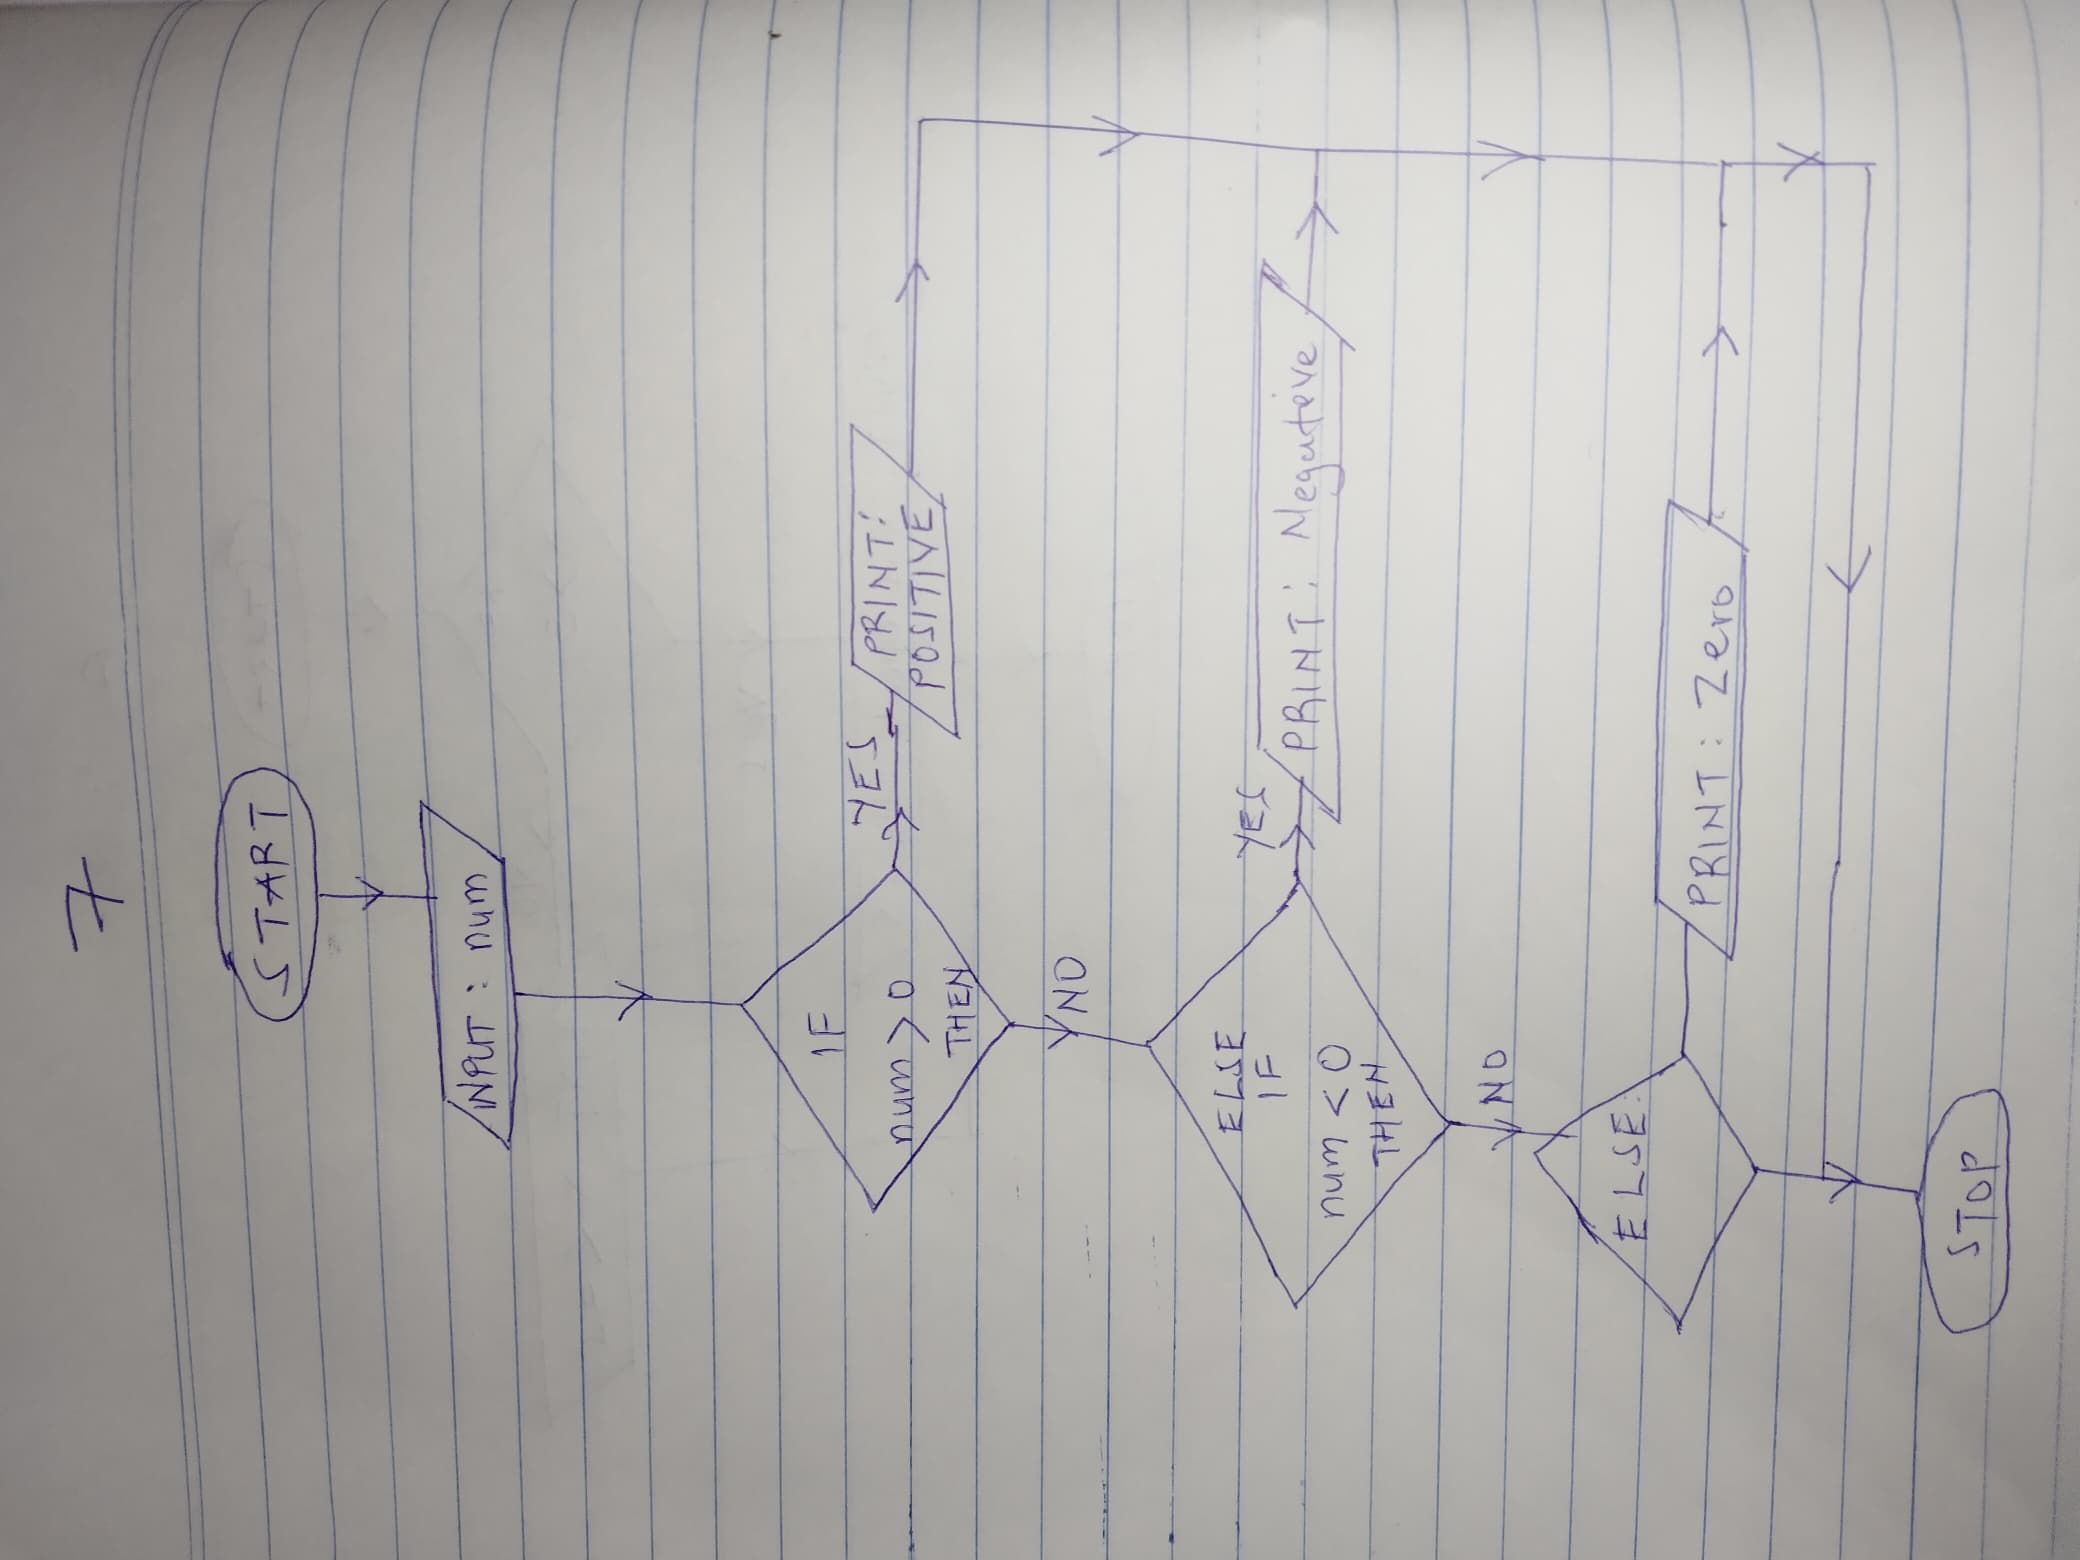 7
START
INPUT : num
IF
num > 0
THEN
YES
PRINT:
POSITIVE
NO
ELSE
IF
num < 0
THEN
YES
PRINT: Negative
NO
ELSE:
PRINT: Zero
STOP